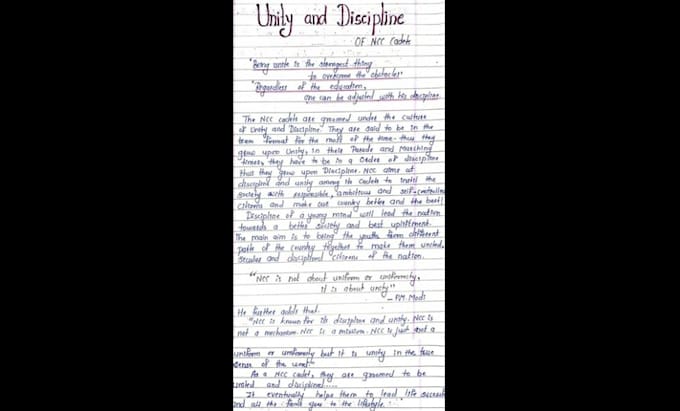 Unity and Discipline
OF NCC Cadets
"Being unite is the strongest thing
to overcome the obstacles"
"Regardless of the education,
one can be adjusted with his discipline
The NCC cadets are groomed under the culture
of Unity and Discipline. They are said to be in the
team format for the most of the time. thus they
grow upon Unity, in their Parade and Marching
times, they have to be in a Order of discipline
thus they grow upon Discipline. NCC aims at
discipline and unity among its cadets to instill the
society with responsible, ambitious and self-controlled
citizens and make our country better and the best!
Discipline of a young mind will lead the nation
towards a better society and best upliftment.
The main aim is to being the youths from different
parts of the country together to make them united,
secular and disciplined citizens of the nation.
"NCC is not about uniform or uniformity,
it is about unity"
- PM Modi
He further adds that.
"NCC is known for its discipline and unity. NCC is
not a mechanism. NCC is a mission. NCC is just not a
uniform or uniformity but it is unity in the true
sense of the word."
As a NCC cadet, they are groomed to be
united and disciplined.....
It eventually helps them to lead life
and all the goes to the lifestyle.